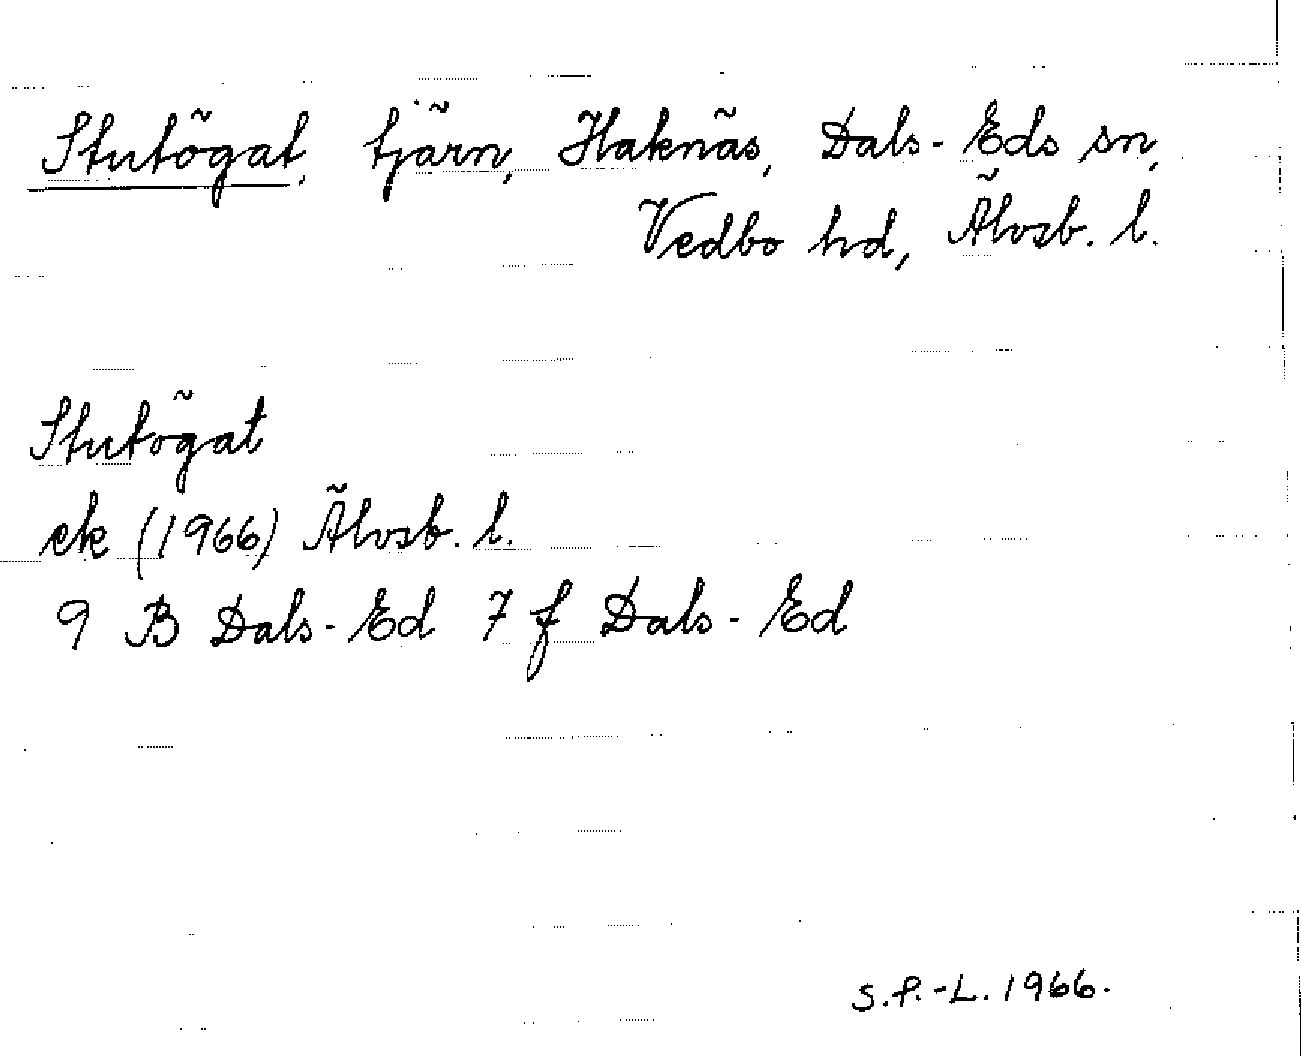 Stutögat, tjärn, Haknäs, Dals-Eds sn,
Vedbo hd, Älvsb. l.
Stutögat
ek (1966) Älvsb. l.
9 B Dals-Ed 7 f Dals-Ed
S.P.-L. 1966.